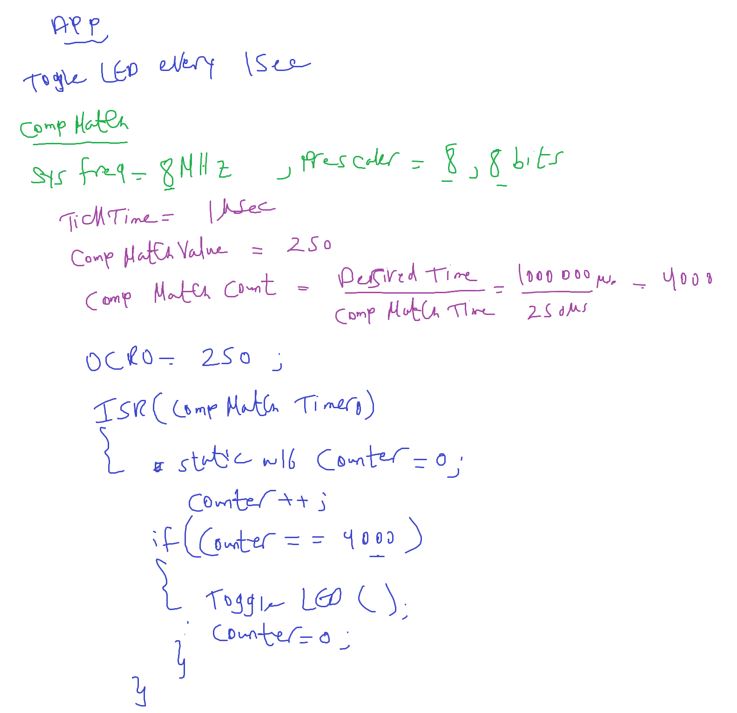 APP
Toggle LED every 1Sec
Comp Match
Sys freq = 8MHz , Prescaler = 8 , 8 bits
TickTime = 1µsec
Comp Match Value = 250
Comp Match Count = Desired Time / Comp Match Time = 1000 000 µs / 250µs = 4000
OCR0 = 250 ;
ISR( Comp Match Timer0 )
{
static u16 Counter = 0 ;
Counter ++ ;
if( Counter == 4000 )
{
Toggle LED ( ) ;
Counter = 0 ;
}
}